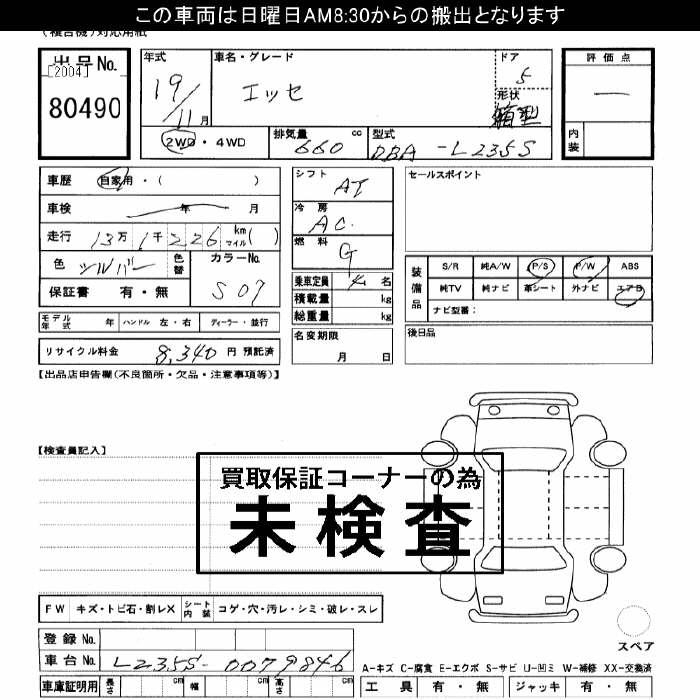 この車両は日曜日AM8:30からの搬出となります
(複合機)対応用紙
出品No.
[2004]
80490
年式
19/11月
車名・グレード
エッセ
ドア
5
形状
箱型
評価点
内装
2WD・4WD
排気量
660 cc
型式
DBA-L235S
車歴 自家用・( )
車検 年 月
走行 13万1千226 km マイル( )
色 シルバー
色替
カラーNo.
S07
保証書 有・無
シフト
AT
冷房
AC.
燃料
G
乗車定員 4 名
積載量 kg
総重量 kg
名変期限
月 日
セールスポイント
装備品
S/R 純A/W P/S P/W ABS
純TV 純ナビ 革シート 外ナビ エアB
ナビ型番:
後日品
モデル年式 年 ハンドル 左・右 ディーラー・並行
リサイクル料金 8,340 円 預託済
【出品店申告欄(不良箇所・欠品・注意事項等)】
【検査員記入】
買取保証コーナーの為
未検査
FW キズ・トビ石・割レX シート内装 コゲ・穴・汚レ・シミ・破レ・スレ
スペア
登録No.
車台No. L235S-0079846
A-キズ C-腐食 E-エクボ S-サビ U-凹ミ W-補修 XX-交換済
車庫証明用 長さ cm 幅 cm 高さ cm
工具 有・無 ジャッキ 有・無